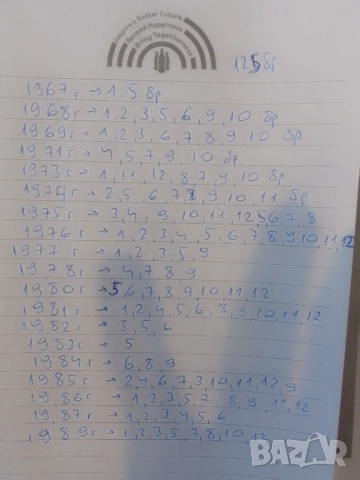 Inspire a Better Future
Spread Happiness
Bring Togetherness
125 бр.
1967г → 1.5 бр
1968г → 1,2,3,5,6,9,10 бр
1969г → 1,2,3,6,7,8,9,10 бр
1971г → 4,5,7,9,10 бр
1973г → 1,11,12,8,7,9,10 бр
1974г → 2,5,6,7,8,9,10,11 бр
1975г → 3,4,9,10,11,12,5,6,7,8
1976г → 1,2,3,4,5,6,7,8,9,10,11,12
1977г → 1,2,3,5,9
1978г → 4,7,8,9
1980г → 5,6,7,8,9,10,11,12
1981г → 1,2,4,5,6,8,9,10,11,12
1982г → 3,5,6
1983г → 5
1984г → 6,8,9
1985г → 2,4,6,7,3,10,11,12,9
1986г → 1,2,3,5,7,8,9,11,12
1987г → 1,2,3,4,5,6
1989г → 1,2,3,5,7,8,10,12
BAZAR.bg